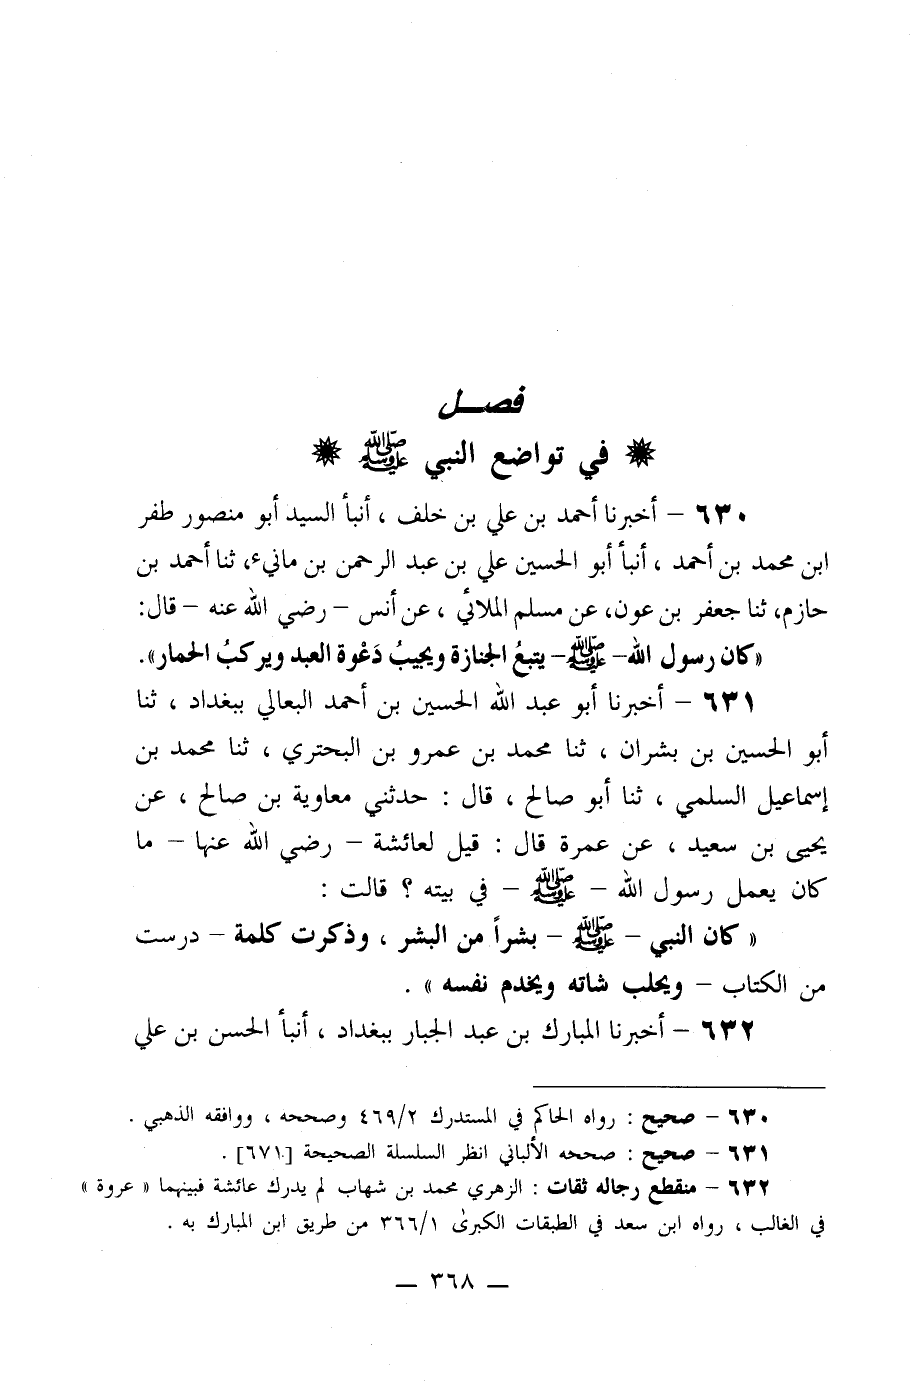 فصـــل
❋ في تواضع النبي ﷺ ❋
٦٣٠ – أخبرنا أحمد بن علي بن خلف ، أنبأ السيد أبو منصور ظفر
ابن محمد بن أحمد ، أنبأ أبو الحسين علي بن عبد الرحمن بن ماتيء، ثنا أحمد بن
حازم، ثنا جعفر بن عون، عن مسلم الملائي ، عن أنس – رضي الله عنه – قال:
«كان رسول الله– ﷺ – يتبعُ الجنازة ويجيبُ دَعْوة العبد ويركبُ الحمار».
٦٣١ – أخبرنا أبو عبد الله الحسين بن أحمد البعالي ببغداد ، ثنا
أبو الحسين بن بشران ، ثنا محمد بن عمرو بن البحتري ، ثنا محمد بن
إسماعيل السلمي ، ثنا أبو صالح ، قال : حدثني معاوية بن صالح ، عن
يحيى بن سعيد ، عن عمرة قال : قيل لعائشة – رضي الله عنها – ما
كان يعمل رسول الله – ﷺ – في بيته ؟ قالت :
« كان النبي – ﷺ – بشراً من البشر ، وذكرت كلمة – درست
من الكتاب – ويحلب شاته ويخدم نفسه » .
٦٣٢ – أخبرنا المبارك بن عبد الجبار ببغداد ، أنبأ الحسن بن علي
٦٣٠ – صحيح : رواه الحاكم في المستدرك ٤٦٩/٢ وصححه ، ووافقه الذهبي .
٦٣١ – صحيح : صححه الألباني انظر السلسلة الصحيحة [٦٧١] .
٦٣٢ – منقطع رجاله ثقات : الزهري محمد بن شهاب لم يدرك عائشة فبينهما « عروة »
في الغالب ، رواه ابن سعد في الطبقات الكبرىٰ ٣٦٦/١ من طريق ابن المبارك به .
— ٣٦٨ —